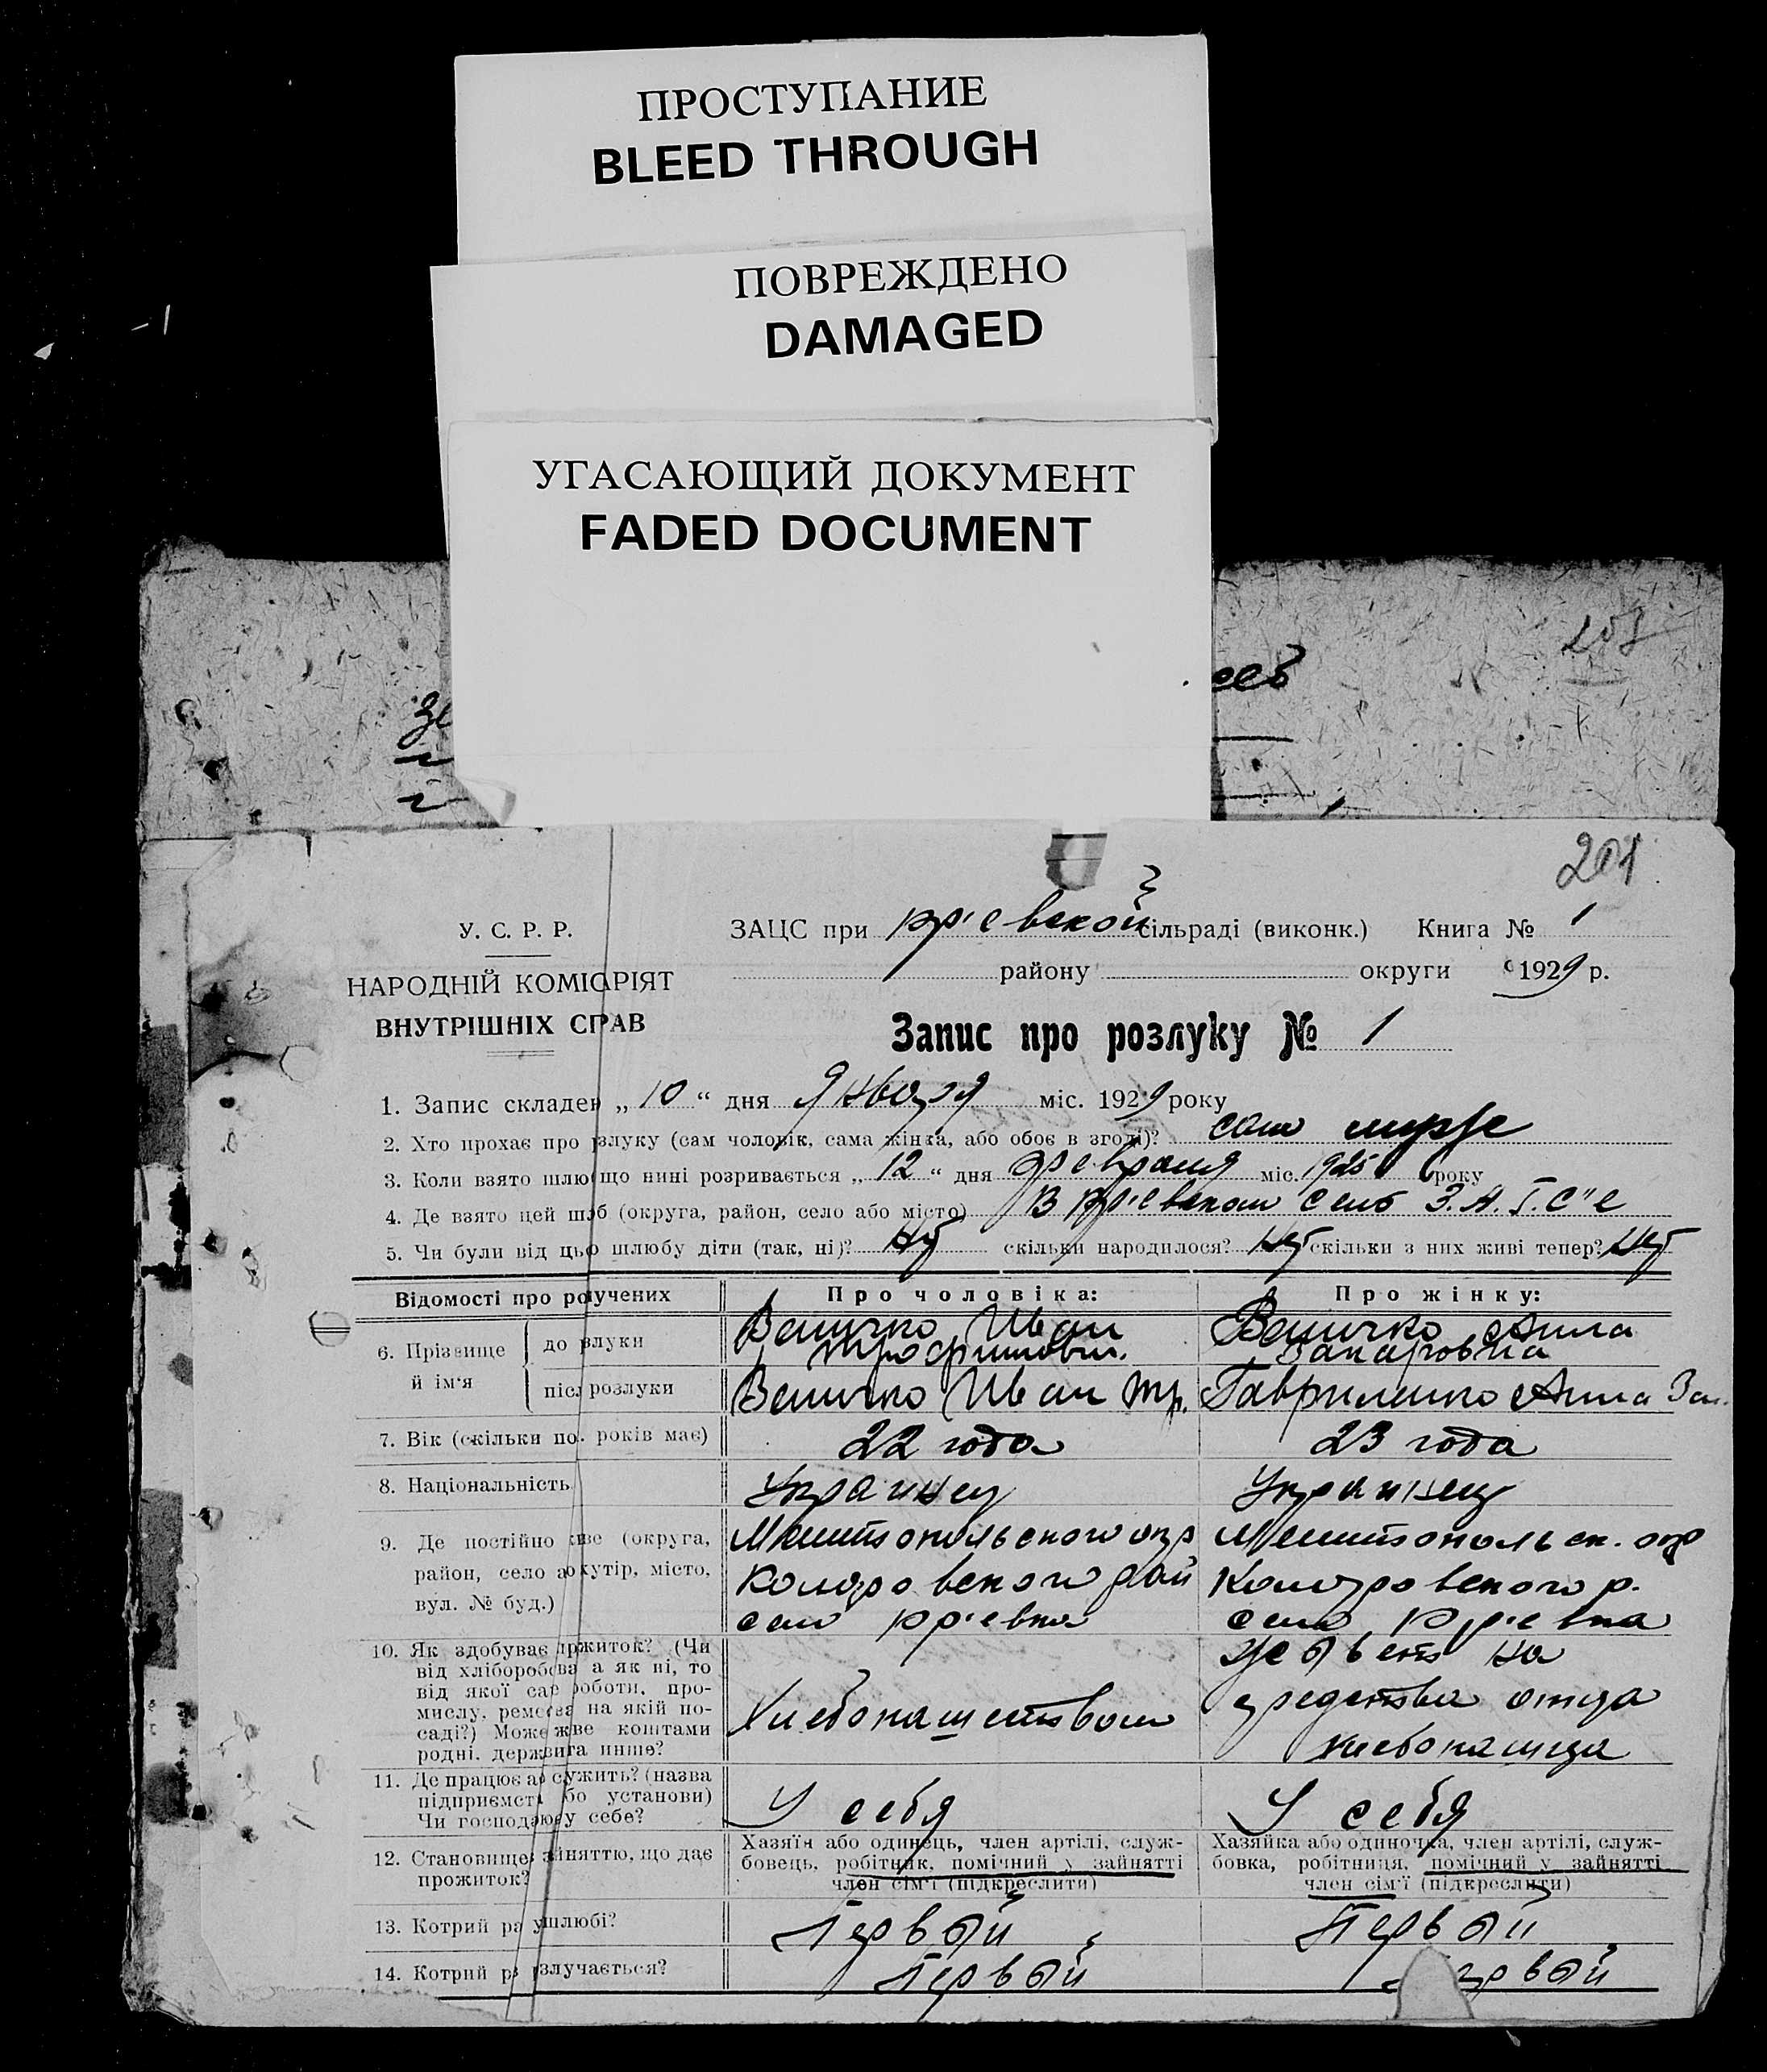 ПРОСТУПАНИЕ
BLEED THROUGH
ПОВРЕЖДЕНО
DAMAGED
УГАСАЮЩИЙ ДОКУМЕНТ
FADED DOCUMENT
201
У. С. Р. Р.
НАРОДНІЙ КОМІСАРІЯТ
ВНУТРІШНІХ СПРАВ
ЗАЦС при Юр'евской сільраді (виконк.) Книга № 1
району округи 1929 р.
Запис про розлуку № 1
1. Запис складен „ 10 “ дня Января міс. 1929 року
2. Хто прохає про розлуку (сам чоловік, сама жінка, або обоє в згоді)? сам муж
3. Коли взято шлюб що нині розривається „ 12 “ дня февраля міс. 1925 року
4. Де взято цей шлюб (округа, район, село або місто) В Юр'евском селб З.А.Г.С"е
5. Чи були від цього шлюбу діти (так, ні)? Нет скільки народилося? Нет скільки з них живі тепер? Нет
Відомості про розлучених Про чоловіка: Про жінку:
6. Прізвище й ім'я
до розлуки Величко Иван Трофимович. Величко Анна Захаровна
після розлуки Величко Иван Тр. Гавриленко Анна Зах.
7. Вік (скільки пов. років має) 22 года 23 года
8. Національність Украинец Украинец
9. Де постійно живе (округа, район, село або хутір, місто, вул. № буд.)
Мелитопольского окр Мелитопольск. окр
Коларовского рай Коларовского р.
село Юр'евка село Юр'евка
10. Як здобуває прожиток? (Чи
від хліборобства а як ні, то
від якої саме роботи, про-
мислу, ремества на якій по-
саді?) Може живе коштами
родні, держави та инше?
Хлебопашеством
живет на
средства отца
хлебопашца
11. Де працює або служить? (назва
підприємства або установи)
Чи господарює у себе?
У себя У себя
12. Становище в зайняттю, що дає
прожиток?
Хазяїн або одинець, член артілі, служ-
бовець, робітник, помічний у зайнятті
член сім'ї (підкреслити)
Хазяйка або одиночка, член артілі, служ-
бовка, робітниця, помічний у зайнятті
член сім'ї (підкреслити)
13. Котрий раз у шлюбі? Первый Первый
14. Котрий раз розлучається? Первый Первый